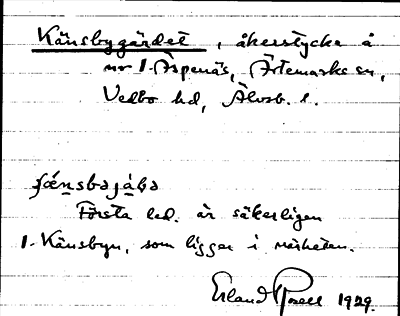 Känsbygärdet, åkerstycke å
nr 1 Aspenäs, Ärtemarks sn,
Vedbo hd, Älvsb. l.
Första led. är säkerligen
1. Känsbyn, som ligger i närheten.
Erland Rosell 1929.